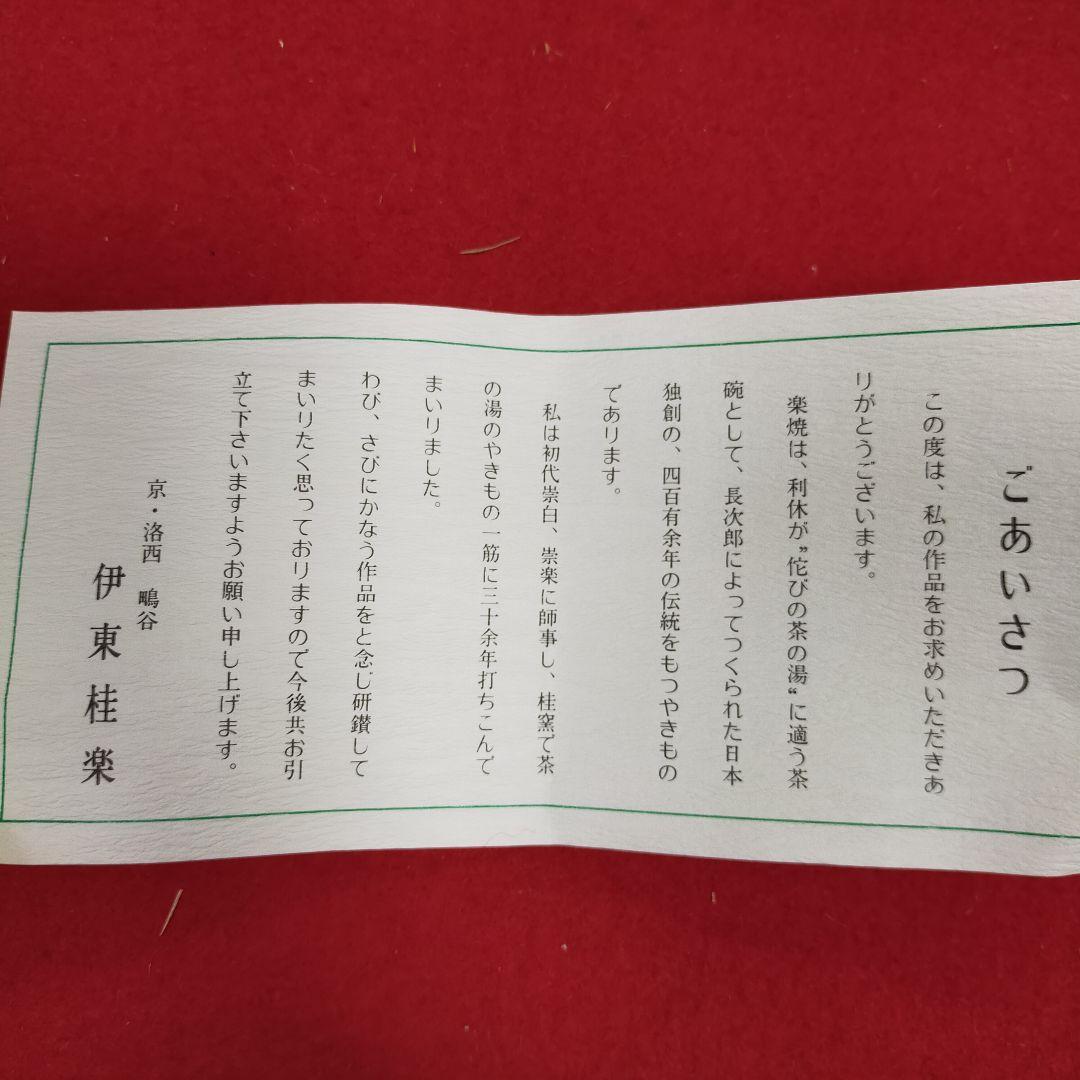 ごあいさつ
この度は、私の作品をお求めいただきあ
りがとうございます。
楽焼は、利休が〝侘びの茶の湯〟に適う茶
碗として、長次郎によってつくられた日本
独創の、四百有余年の伝統をもつやきもの
であります。
私は初代崇白、崇楽に師事し、桂窯で茶
の湯のやきもの一筋に三十余年打ちこんで
まいりました。
わび、さびにかなう作品をと念じ研鑚して
まいりたく思っておりますので今後共お引
立て下さいますようお願い申し上げます。
京・洛西 鴫谷
伊東桂楽